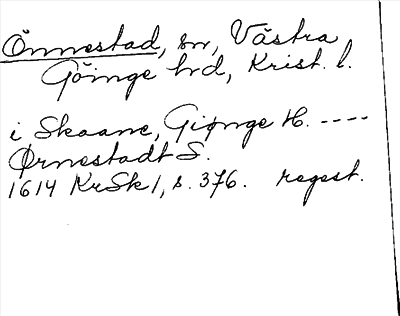 Önnestad, sn, Västra
Göinge hd, Krist. l.
i Skaane, Giønge H. ----
Ørnestadt S.
1614 KrSk 1, s. 376. regest.